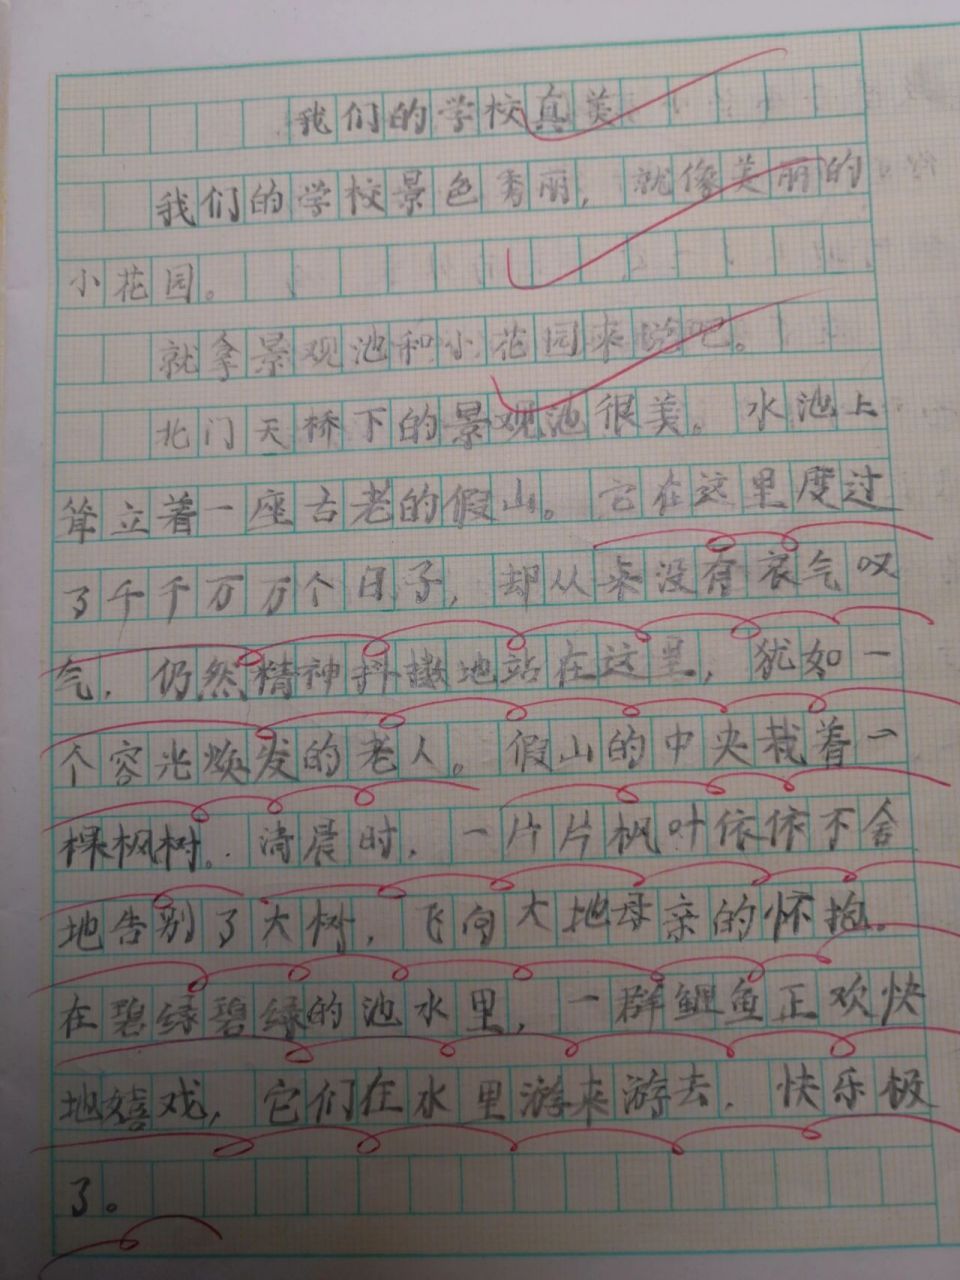 我们的学校真美
我们的学校景色秀丽，就像美丽的
小花园。
就拿景观池和小花园来说吧。
北门天桥下的景观池很美。水池上
耸立着一座古老的假山。它在这里度过
了千千万万个日子，却从来没有哀气叹
气，仍然精神抖擞地站在这里，犹如一
个容光焕发的老人。假山的中央栽着一
棵枫树。清晨时，一片片枫叶依依不舍
地告别了大树，飞向大地母亲的怀抱。
在碧绿碧绿的池水里，一群鲤鱼正欢快
地嬉戏，它们在水里游来游去，快乐极
了。